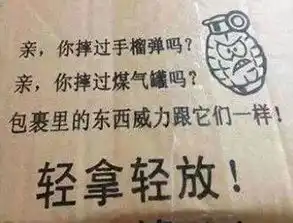 亲，你摔过手榴弹吗？
亲，你摔过煤气罐吗？
包裹里的东西威力跟它们一样！
轻拿轻放！